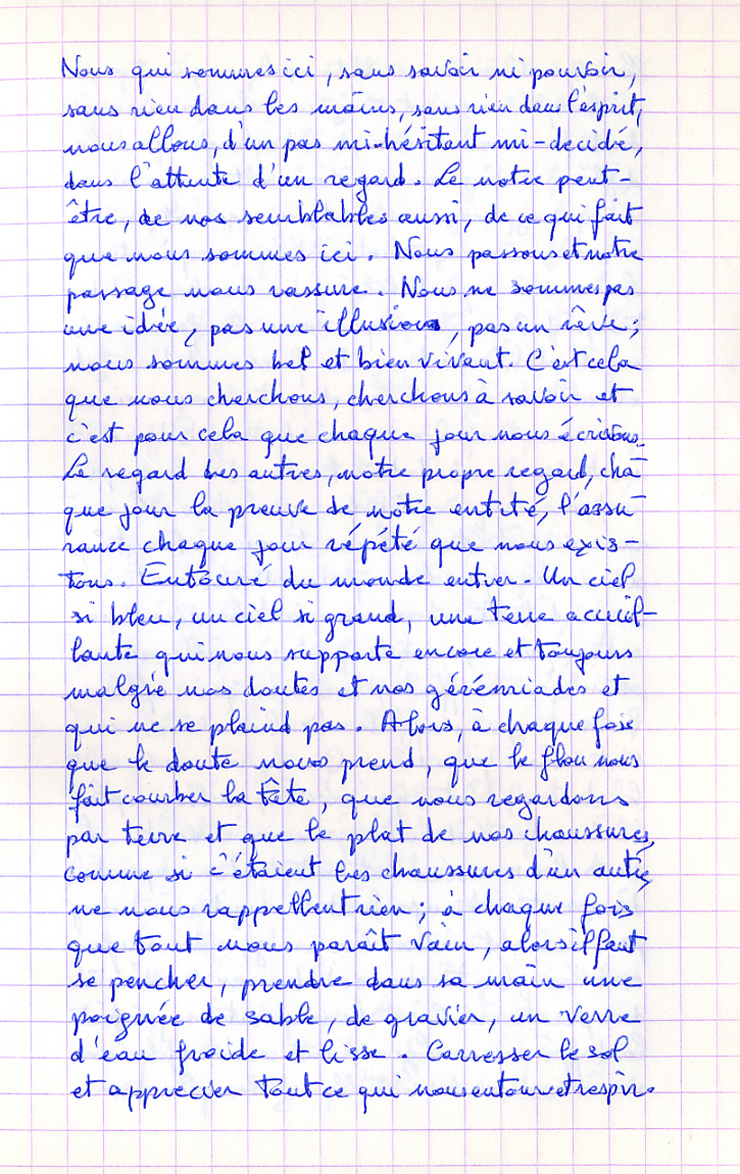 Nous qui sommes ici, sans savoir ni pouvoir,
sans rien dans les mains, sans rien dans l'esprit,
nous allons, d'un pas mi-hésitant mi-decidé,
dans l'attente d'un regard. Le notre peut-
être, de nos semblables aussi, de ce qui fait
que nous sommes ici. Nous passons et notre
passage nous rassure. Nous ne sommes pas
une idée, pas une illusion, pas un rêve;
nous sommes bel et bien vivant. C'est cela
que nous cherchons, cherchons à savoir et
c'est pour cela que chaque jour nous écrivons.
Le regard des autres, notre propre regard, cha-
que jour la preuve de notre entité, l'assu-
rance chaque jour répété que nous exis-
tons. Entouré du monde entier. Un ciel
si bleu, un ciel si grand, une terre accueil-
lante qui nous supporte encore et toujours
malgré nos doutes et nos gérémiades et
qui ne se plaind pas. Alors, à chaque fois
que le doute nous prend, que le flou nous
fait courber la tête, que nous regardons
par terre et que le plat de nos chaussures,
comme si c'étaient les chaussures d'un autre,
ne nous rappellent rien; à chaque fois
que tout nous paraît vain, alors il faut
se pencher, prendre dans sa main une
poignée de sable, de gravier, un verre
d'eau froide et lisse. Carresser le sol
et apprecier tout ce qui nous entoure et respir.